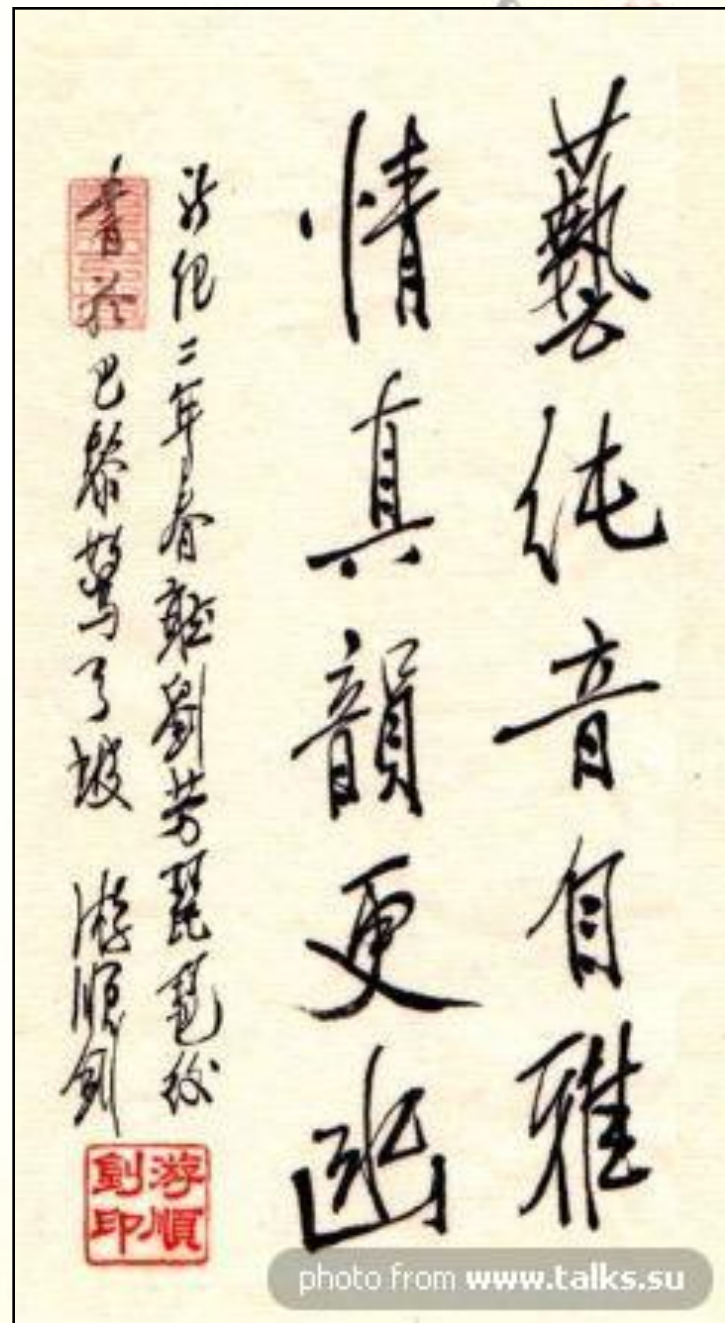 藝純音自雅
情真韻更幽
新紀二年春聽劉芳琵琶後
書於巴黎弓坡 游順釗
游順釗印
photo from www.talks.su